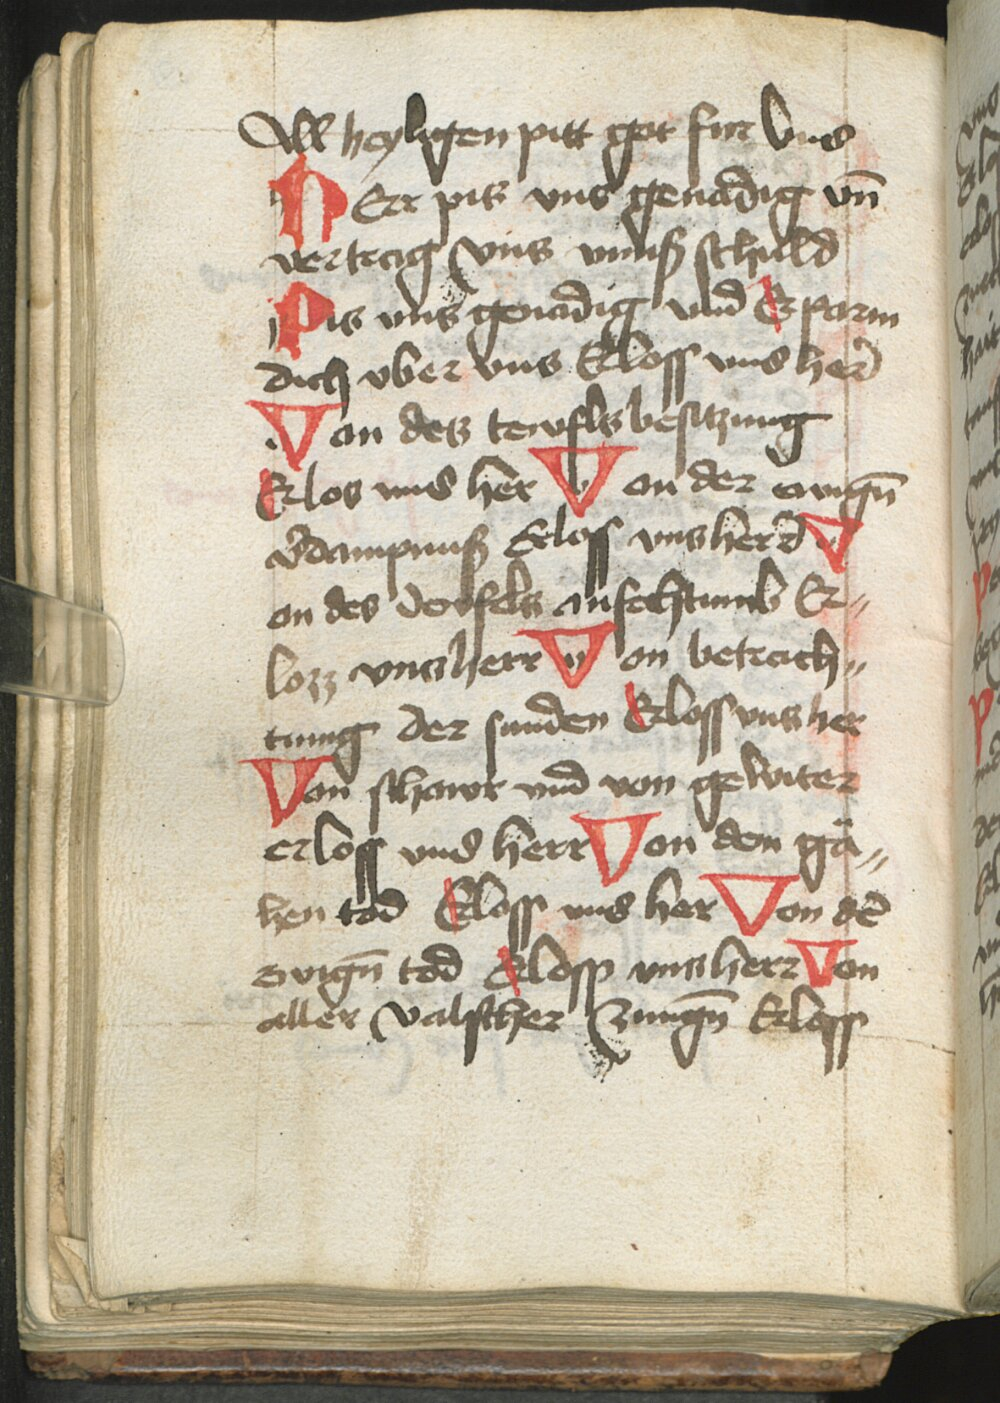 All heyligen pitt got fur vns
HErr pis vns genadig vn̄
vertrag vns vnnß schuld
Pis vns genadig vnd Erparm
dich vber vns Erloss vns her̄
Von des tewfls besitzung
Erlos vns herr Von der ewign̄
v̄dampnuß Erloss vns herr V
on des devfels anfechtumb Er„
lozz vns herr Von betrach„
tung der sunden Erloss vns her
Von schawr vnd von gewiter
erloss vns herr Von dem gä„
hen tod Erloss vns her Von dē
ewign̄ tod Erloss vns herr Von
aller valscher zungn̄ Erloss